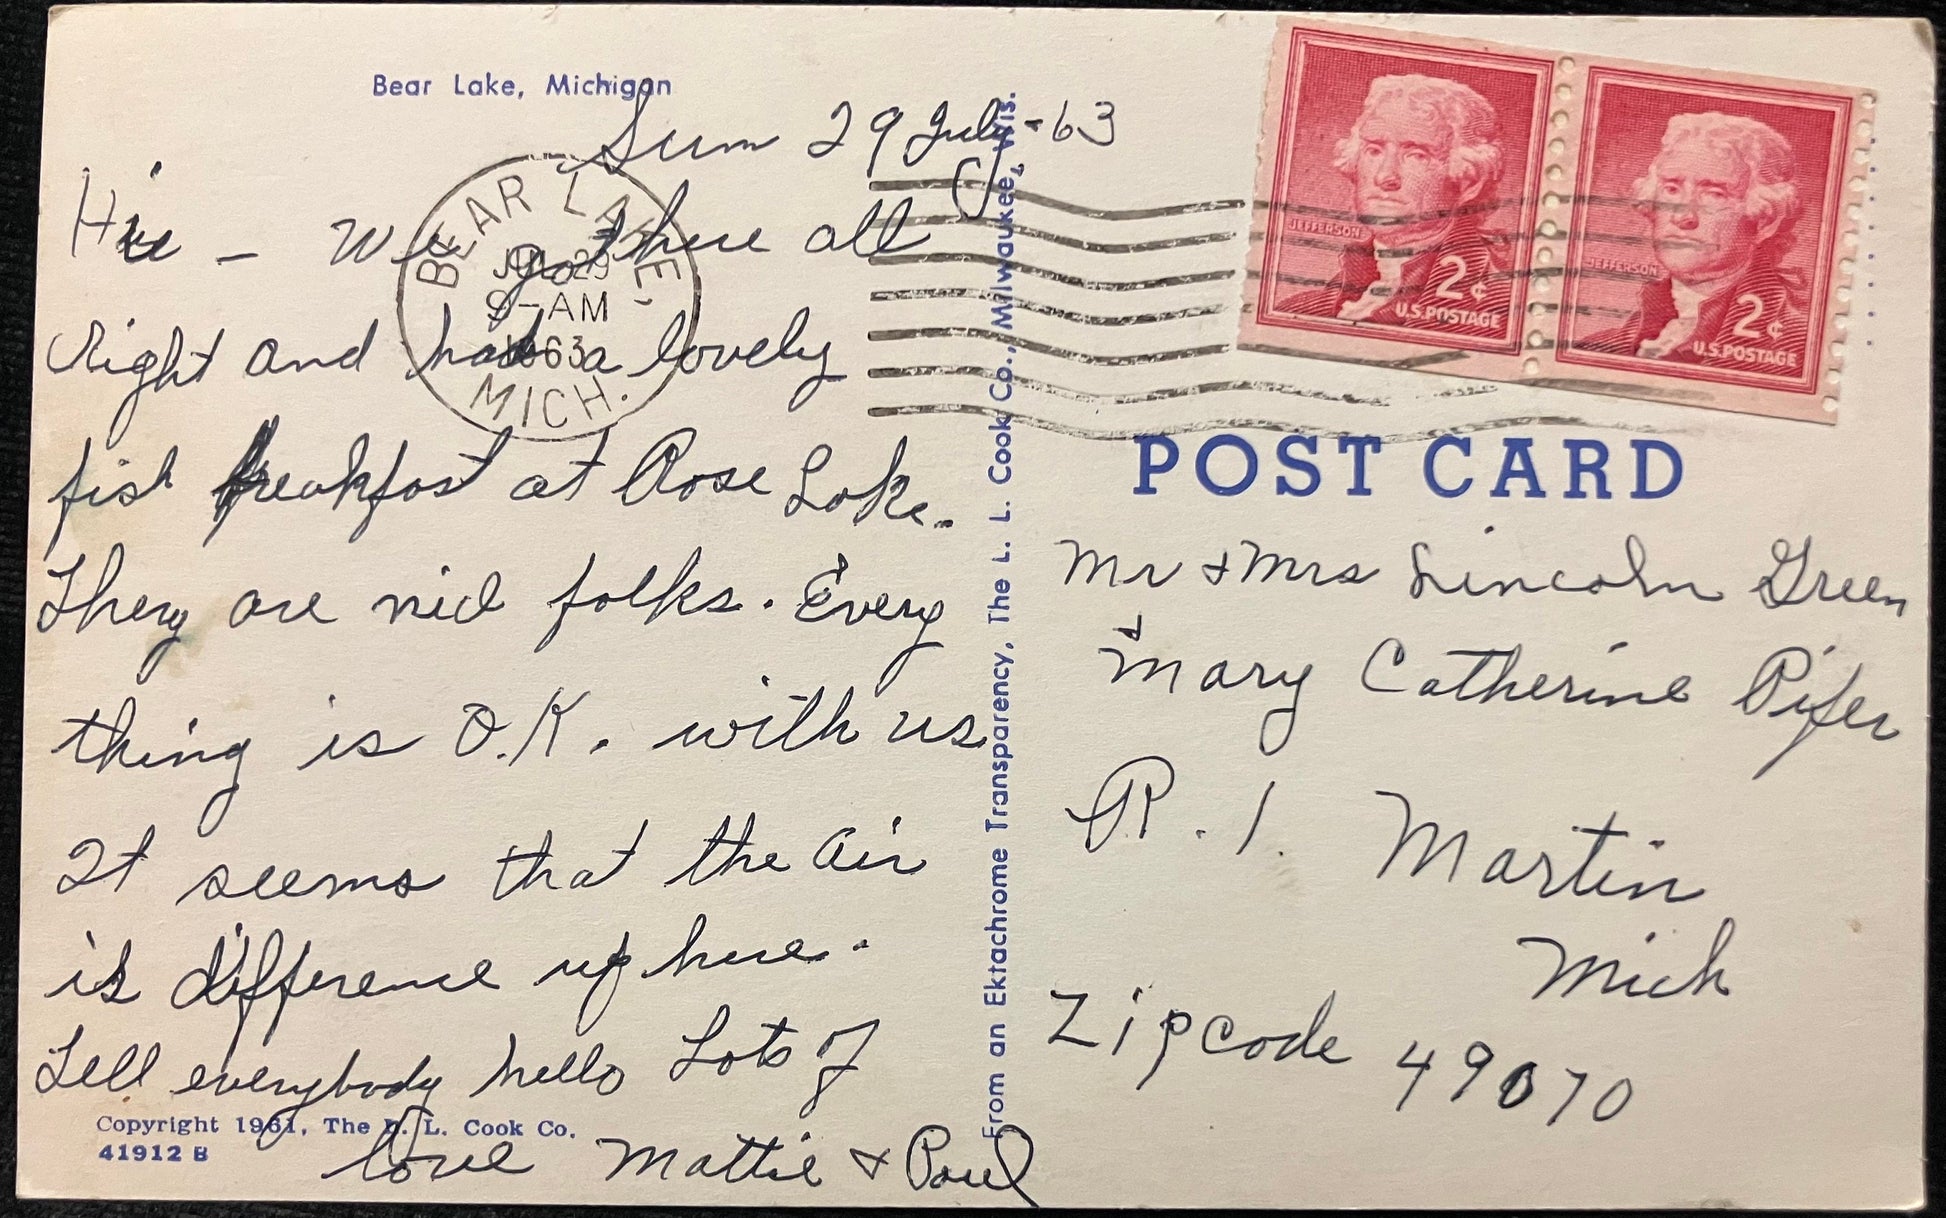 Bear Lake, Michigan
Sun 29 July - 63
Hie - We got here all
right and had a lovely
fish breakfast at Rose Lake.
They are nice folks. Every
thing is O.K. with us
It seems that the air
is difference up here.
Tell everybody hello Lots of
love Mattie & Paul
Copyright 1961, The L. L. Cook Co.
41912 B
BEAR LAKE,
JUL 29
9-AM
1963
MICH.
From an Ektachrome Transparency, The L. L. Cook Co., Milwaukee, Wis.
JEFFERSON
2¢
U.S. POSTAGE
JEFFERSON
2¢
U.S. POSTAGE
POST CARD
Mr & Mrs Lincoln Green
& Mary Catherine Pifer
R. 1. Martin
Mich
Zipcode 49070